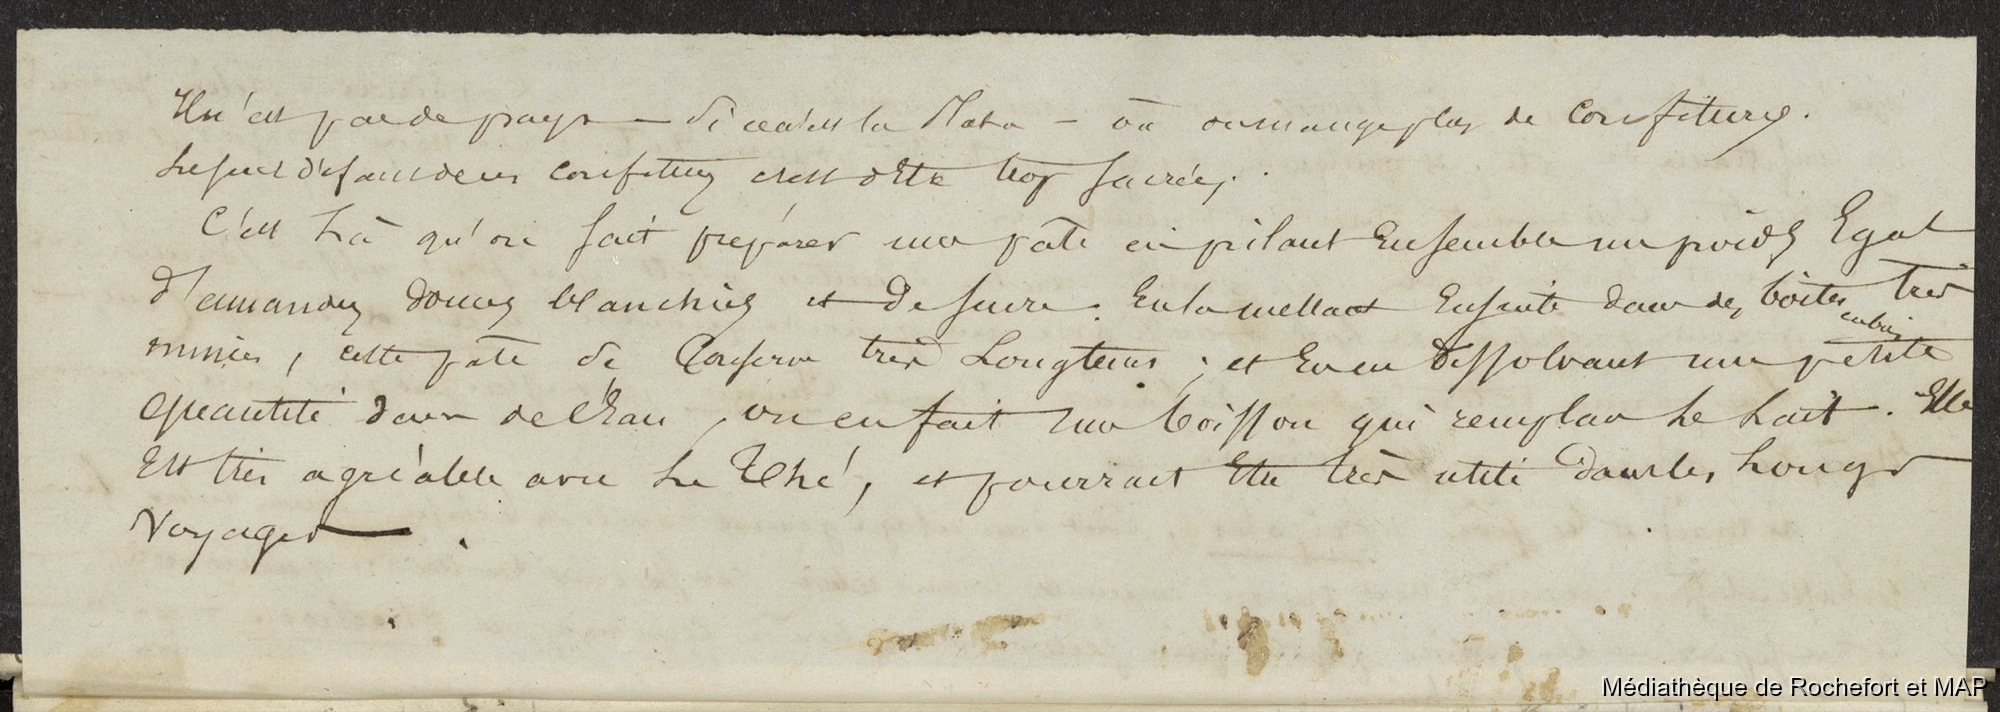 Il n'est pas de pays — si ce n'est la Plata — où on mange plus de confitures.
Le seul défaut de ces confitures c'est d'être trop sucrées.
C'est là qu'on fait préparer une pâte en pilant Ensemble un poids Egal
d'amandes douces blanchies et de sucre. En la mettant Ensuite dans des boîtes en bois très
minces, cette pâte se Conserve très Longtems ; et En en dissolvant une petite
quantité dans de l'Eau, on en fait une boisson qui remplace le Lait. Elle
Est très agréable avec le Thé, et pourrait Etre très utile dans les Longs
Voyages.
Médiathèque de Rochefort et MAP